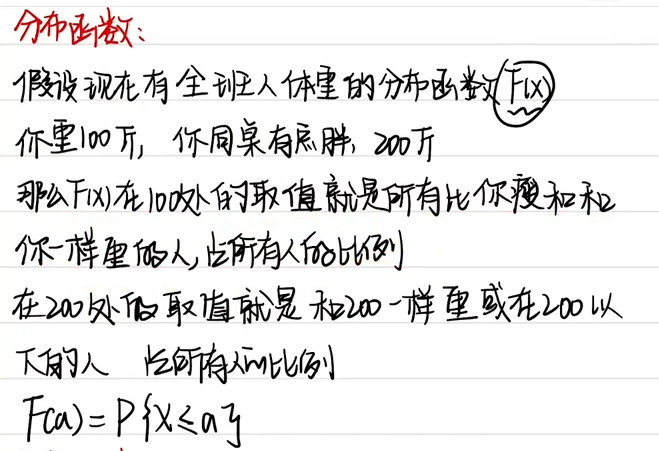 分布函数：
假设现在有全班人体重的分布函数F(x)
你重100斤，你同桌有点胖，200斤
那么F(x)在100处的取值就是所有比你瘦和和
你一样重的人，占所有人的比例
在200处的取值就是和200一样重或在200以
下的人 占所有人的比例
F(a)=P{X≤a}